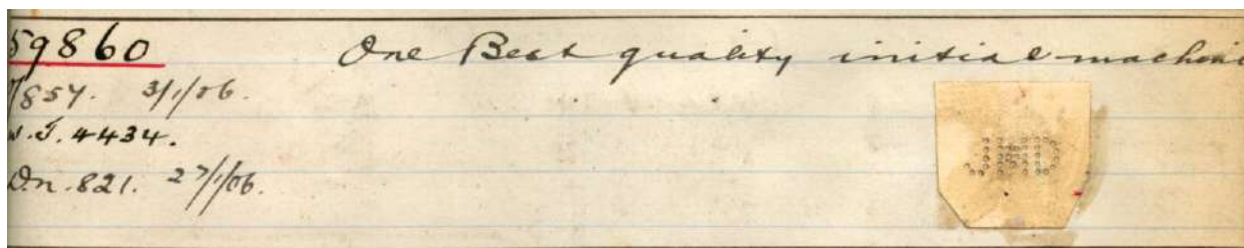 59860 One Best quality initial machine
857. 3/1/06.
4434.
On. 821. 27/1/06.